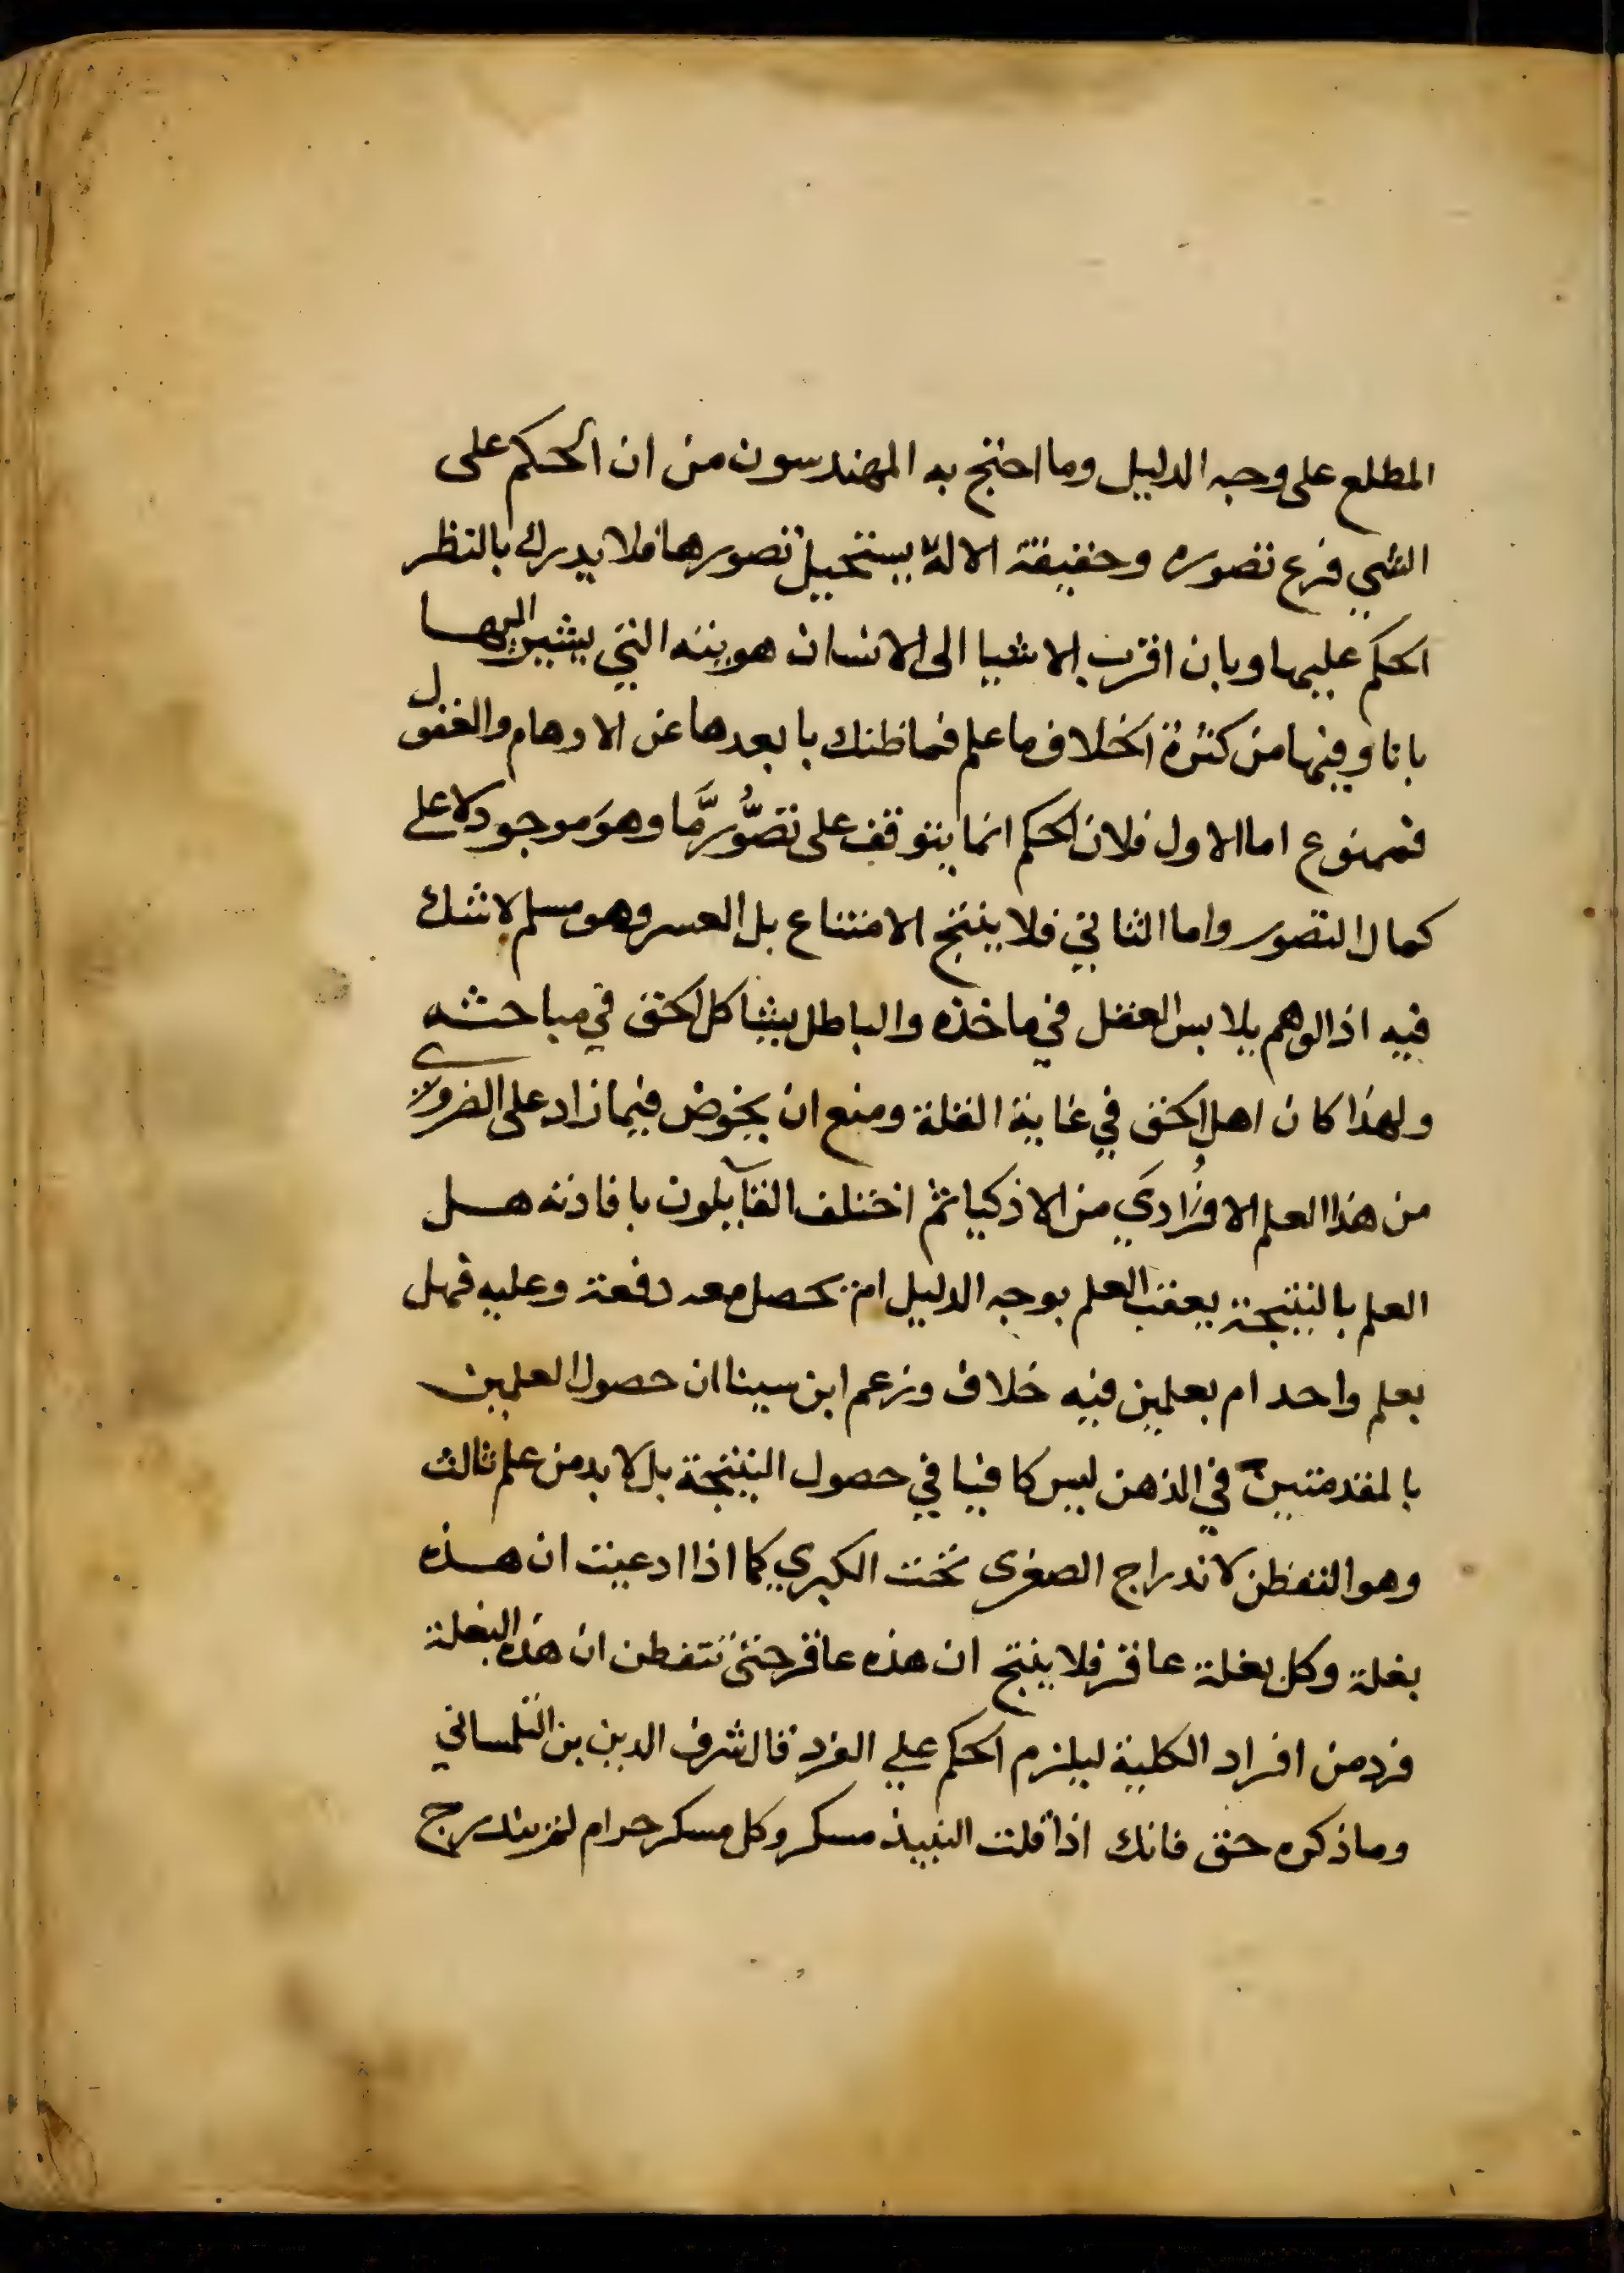 المطلع على وجه الدليل وما احتج به المهندسون من ان الحكم على
الشي فرع تصوره وحقيقة الاله يستحيل تصورها فلا يدرك بالنظر
الحكم عليها وبان اقرب الاشيا الى الانسان هويته التي يشير اليها
بانا وفيها من كثرة الخلاف ما علم فما ظنك بابعدها عن الاوهام والعقول
فممنوع اما الاول فلان الحكم انما يتوقف على تصَوُّرٍ مَّا وهوَ موجود لا على
كمال التصور واما الثاني فلا ينتج الامتناع بل العسر وهو مسلم لا شك
فيه اذ الوهم يلابس العقل في ماخذه والباطل يشاكل الحق في مباحثه
ولهذا كان اهل الحق في غاية القلة ومنع ان يخوض فيما زاد على الضروري
من هذا العلم الا فُرَاديَ من الاذكيا ثم اختلف القآيلون بافادته هل
العلم بالنتيجة يعقب العلم بوجه الدليل ام يحصل معه دفعة وعليه فهل
بعلم واحد ام بعلمين فيه خلاف وزعم ابن سينا ان حصول العلمين
بالمقدمتين في الذهن ليس كافيا في حصول النتيجة بل لا بد من علم ثالث
وهو التفطن لاندراج الصغرى تحت الكبري كما اذا ادعيت ان هذه
بغلة وكل بغلة عاقر فلا ينتج ان هذه عاقر حتى تتفطن ان هذه البغلة
فرد من افراد الكلية ليلزم الحكم علي الفرد قال شرف الدين بن التلمساني
وما ذكره حق فانك اذا قلت النبيذ مسكر وكل مسكر حرام لم يندرج